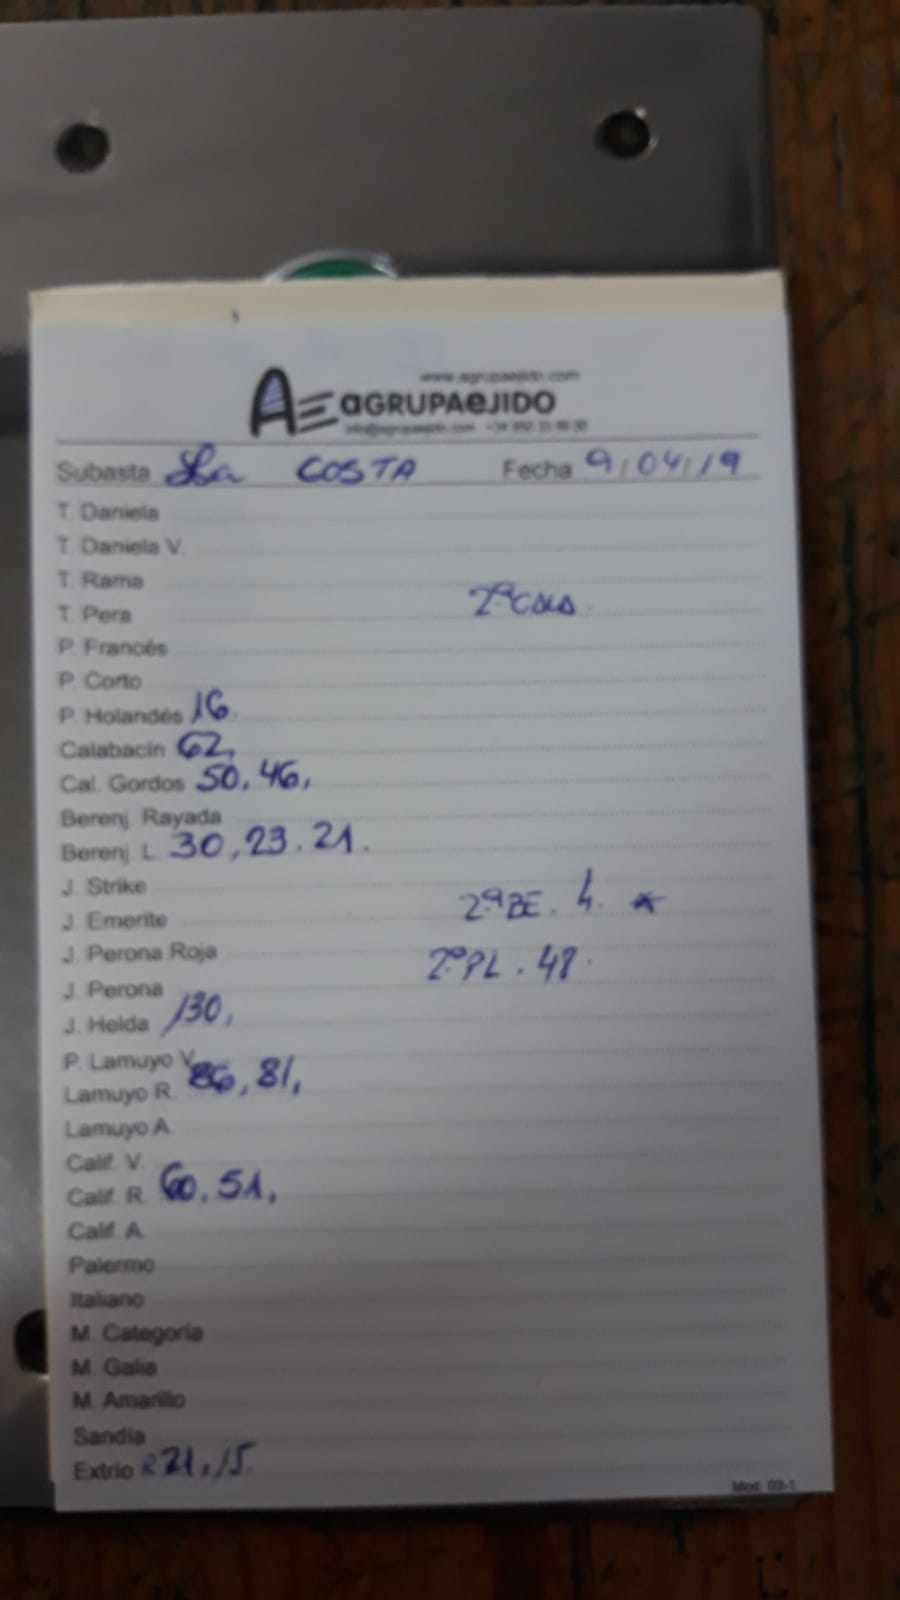 www.agrupaejido.com
AE aGRUPAeJIDO
info@agrupaejido.com
Subasta La COSTA Fecha 9/04/19
T. Daniela
T. Daniela V.
T. Rama
T. Pera
P. Francés
P. Corto
P. Holandés 16.
Calabacín 62,
Cal. Gordos 50, 46,
Berenj. Rayada
Berenj. L. 30, 23. 21.
J. Strike
J. Emerite 2ªBE. 4. *
J. Perona Roja
J. Perona 2ªPL. 48.
J. Helda 130,
P. Lamuyo V.
Lamuyo R. 86, 81,
Lamuyo A.
Calif. V.
Calif. R. 60, 51,
Calif. A.
Palermo
Italiano
M. Categoría
M. Galia
M. Amarillo
Sandía
Extrio R 21, 15.
Mod. 03-1